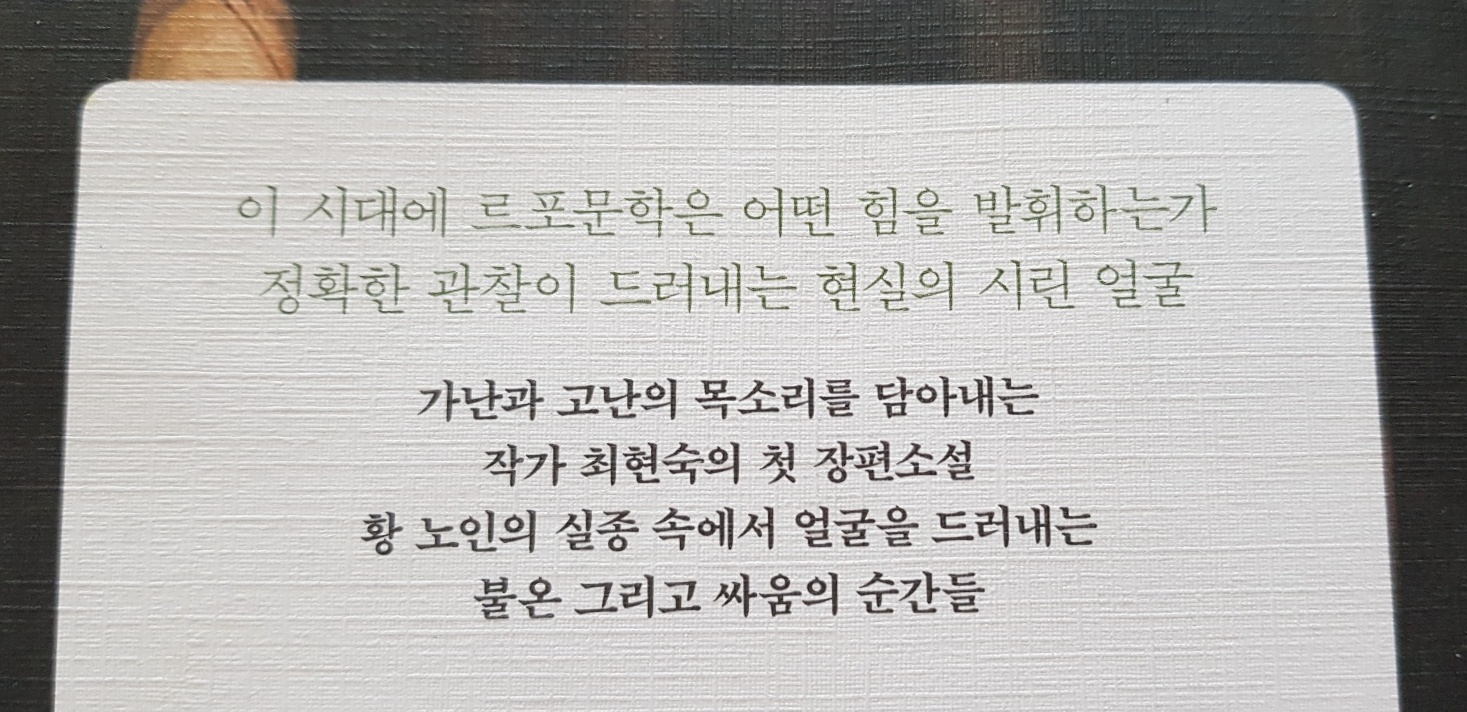 이 시대에 르포문학은 어떤 힘을 발휘하는가
정확한 관찰이 드러내는 현실의 시린 얼굴
가난과 고난의 목소리를 담아내는
작가 최현숙의 첫 장편소설
황 노인의 실종 속에서 얼굴을 드러내는
불온 그리고 싸움의 순간들